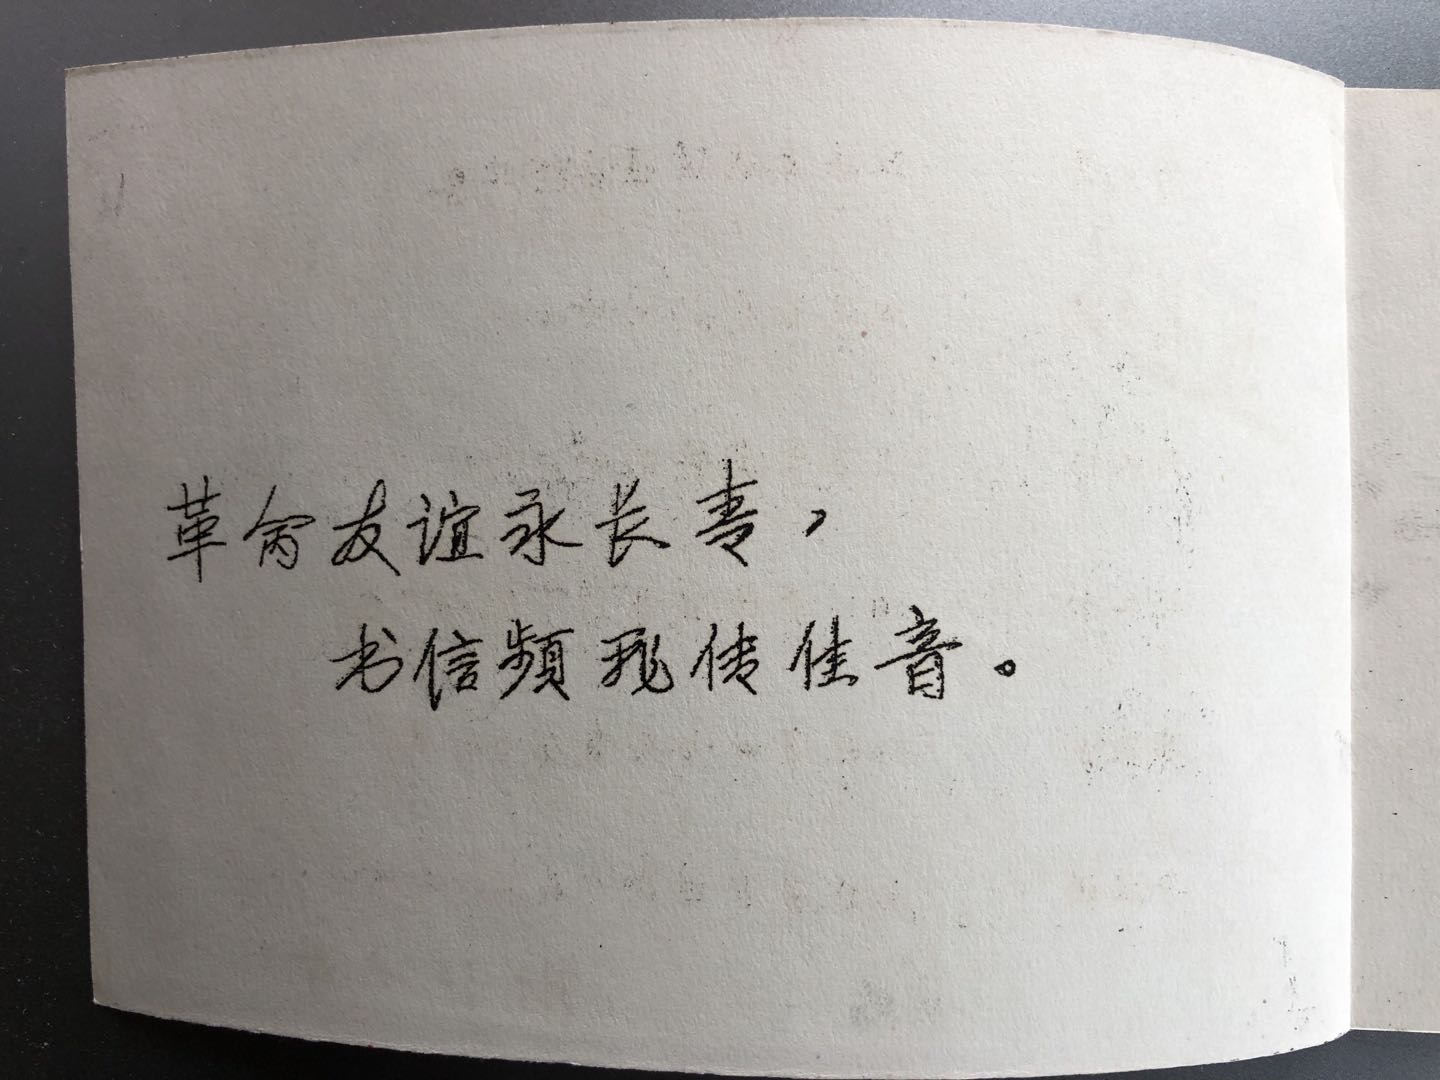 革命友谊永长青，
书信频飞传佳音。